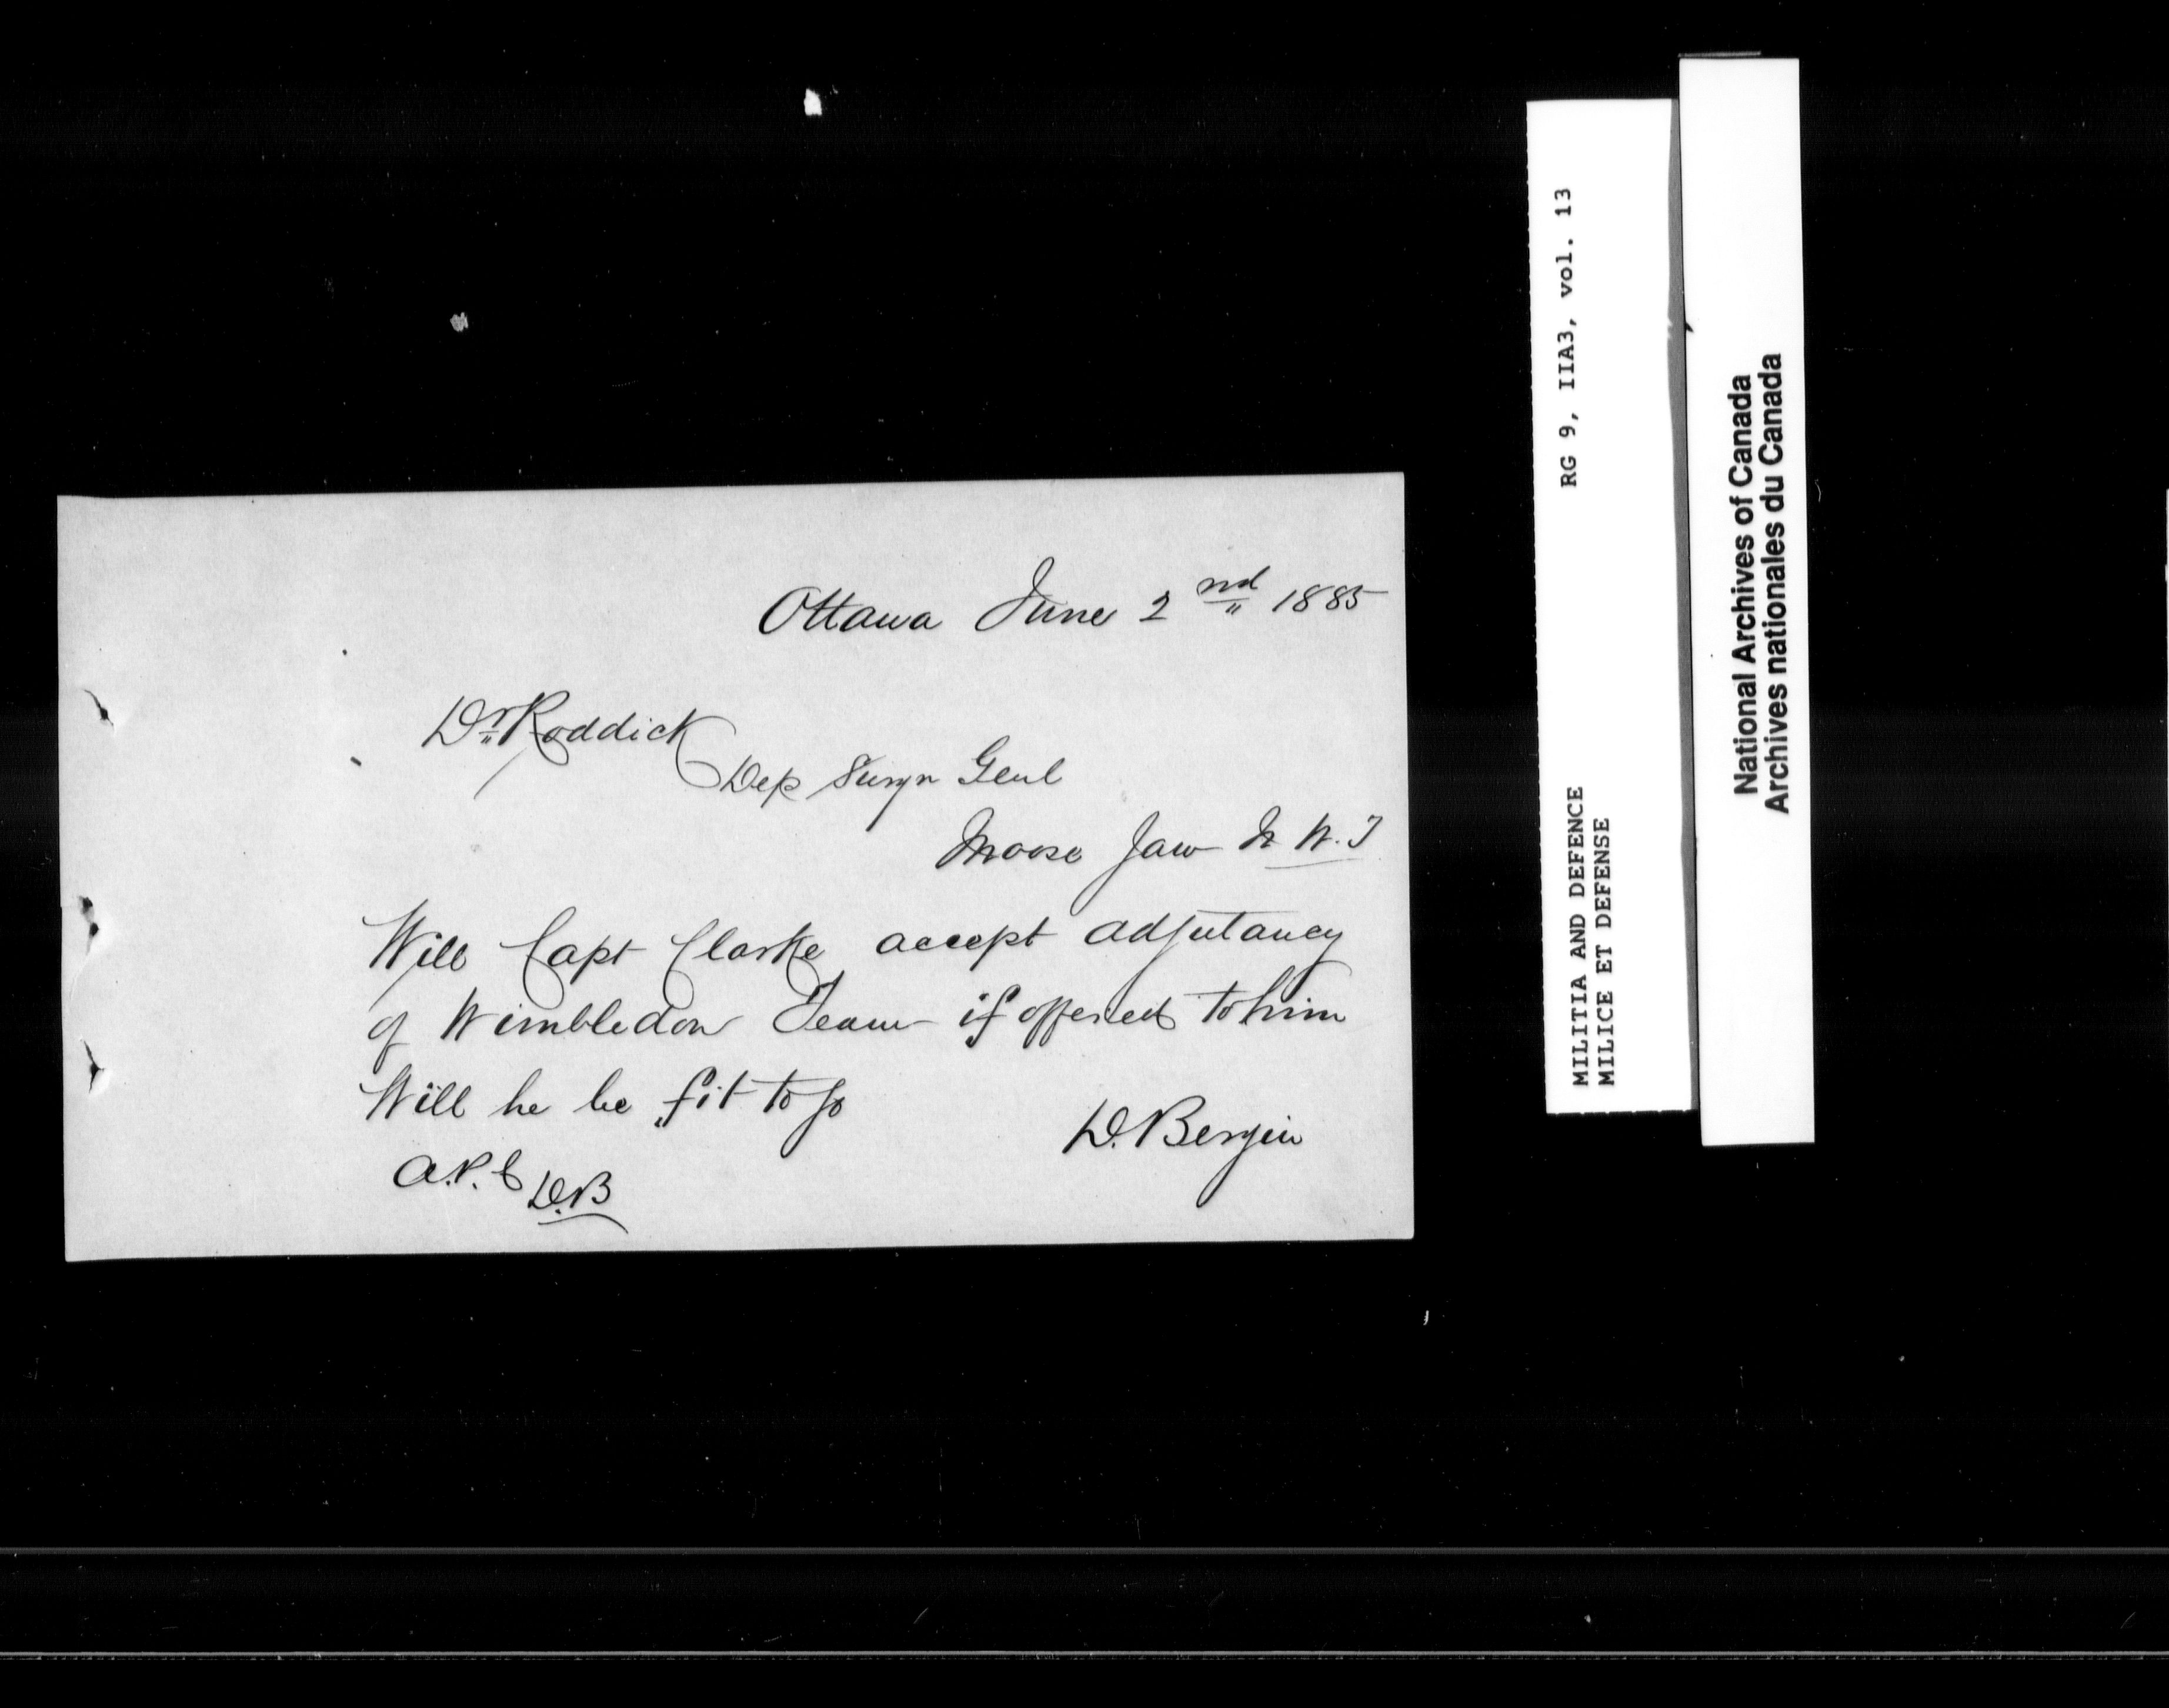 Ottawa June 2nd 1885
Dr Roddick
Dep Surgn Genl
Moose Jaw N.W.T
Will Capt Clarke accept adjutancy
of Wimbledon Team if offered to him
Will he be fit to go
D. Bergin
D.B
RG 9, IIA3, vol. 13
MILITIA AND DEFENCE
MILICE ET DEFENSE
National Archives of Canada
Archives nationales du Canada